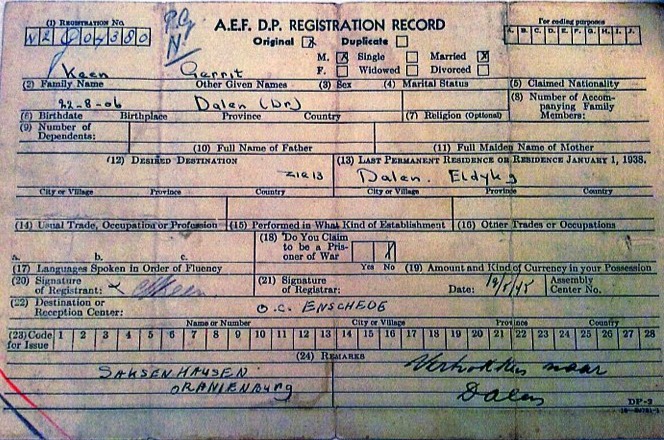 (1) REGISTRATION NO.
A.E.F. D.P. REGISTRATION RECORD
For coding purposes
Original Duplicate
A. B. C. D. E. F. G. H. I. J.
M. X Single Married X
F. Widowed Divorced
Keen Gerrit
(2) Family Name Other Given Names (3) Sex (4) Marital Status (5) Claimed Nationality
22-8-06 Dalen (Dr)
(6) Birthdate Birthplace Province Country (7) Religion (Optional) (8) Number of Accompanying Family Members:
(9) Number of Dependents: (10) Full Name of Father (11) Full Maiden Name of Mother
(12) DESIRED DESTINATION (13) LAST PERMANENT RESIDENCE OR RESIDENCE JANUARY 1, 1938.
Dalen. Eldyk 9
City or Village Province Country City or Village Province Country
(14) Usual Trade, Occupation or Profession (15) Performed in What Kind of Establishment (16) Other Trades or Occupations
(18) Do You Claim to be a Prisoner of War
a. b. c. Yes No
(17) Languages Spoken in Order of Fluency (19) Amount and Kind of Currency in your Possession
(20) Signature of Registrant: (21) Signature of Registrar: Date: Assembly Center No.
(22) Destination or Reception Center: O.C. ENSCHEDE
Name or Number City or Village Province Country
(23) Code for Issue 1 2 3 4 5 6 7 8 9 10 11 12 13 14 15 16 17 18 19 20 21 22 23 24 25 26 27 28
(24) REMARKS
SAKSENHAUSEN Vertrokken naar
ORANIENBURG Dalen
DP-2